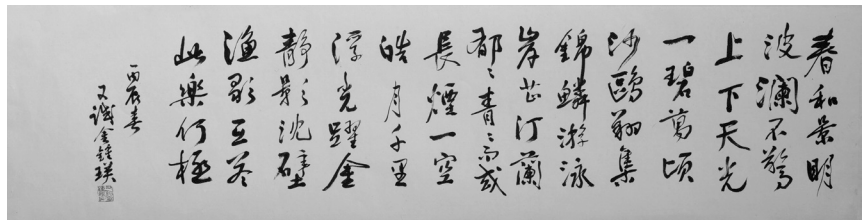 春和景明
波瀾不驚
上下天光
一碧萬頃
沙鷗翔集
錦鱗游泳
岸芷汀蘭
郁〻青〻而或
長煙一空
皓月千里
浮光躍金
靜影沈璧
漁歌互答
此樂何極
丙辰春
又誠金鍾瑛